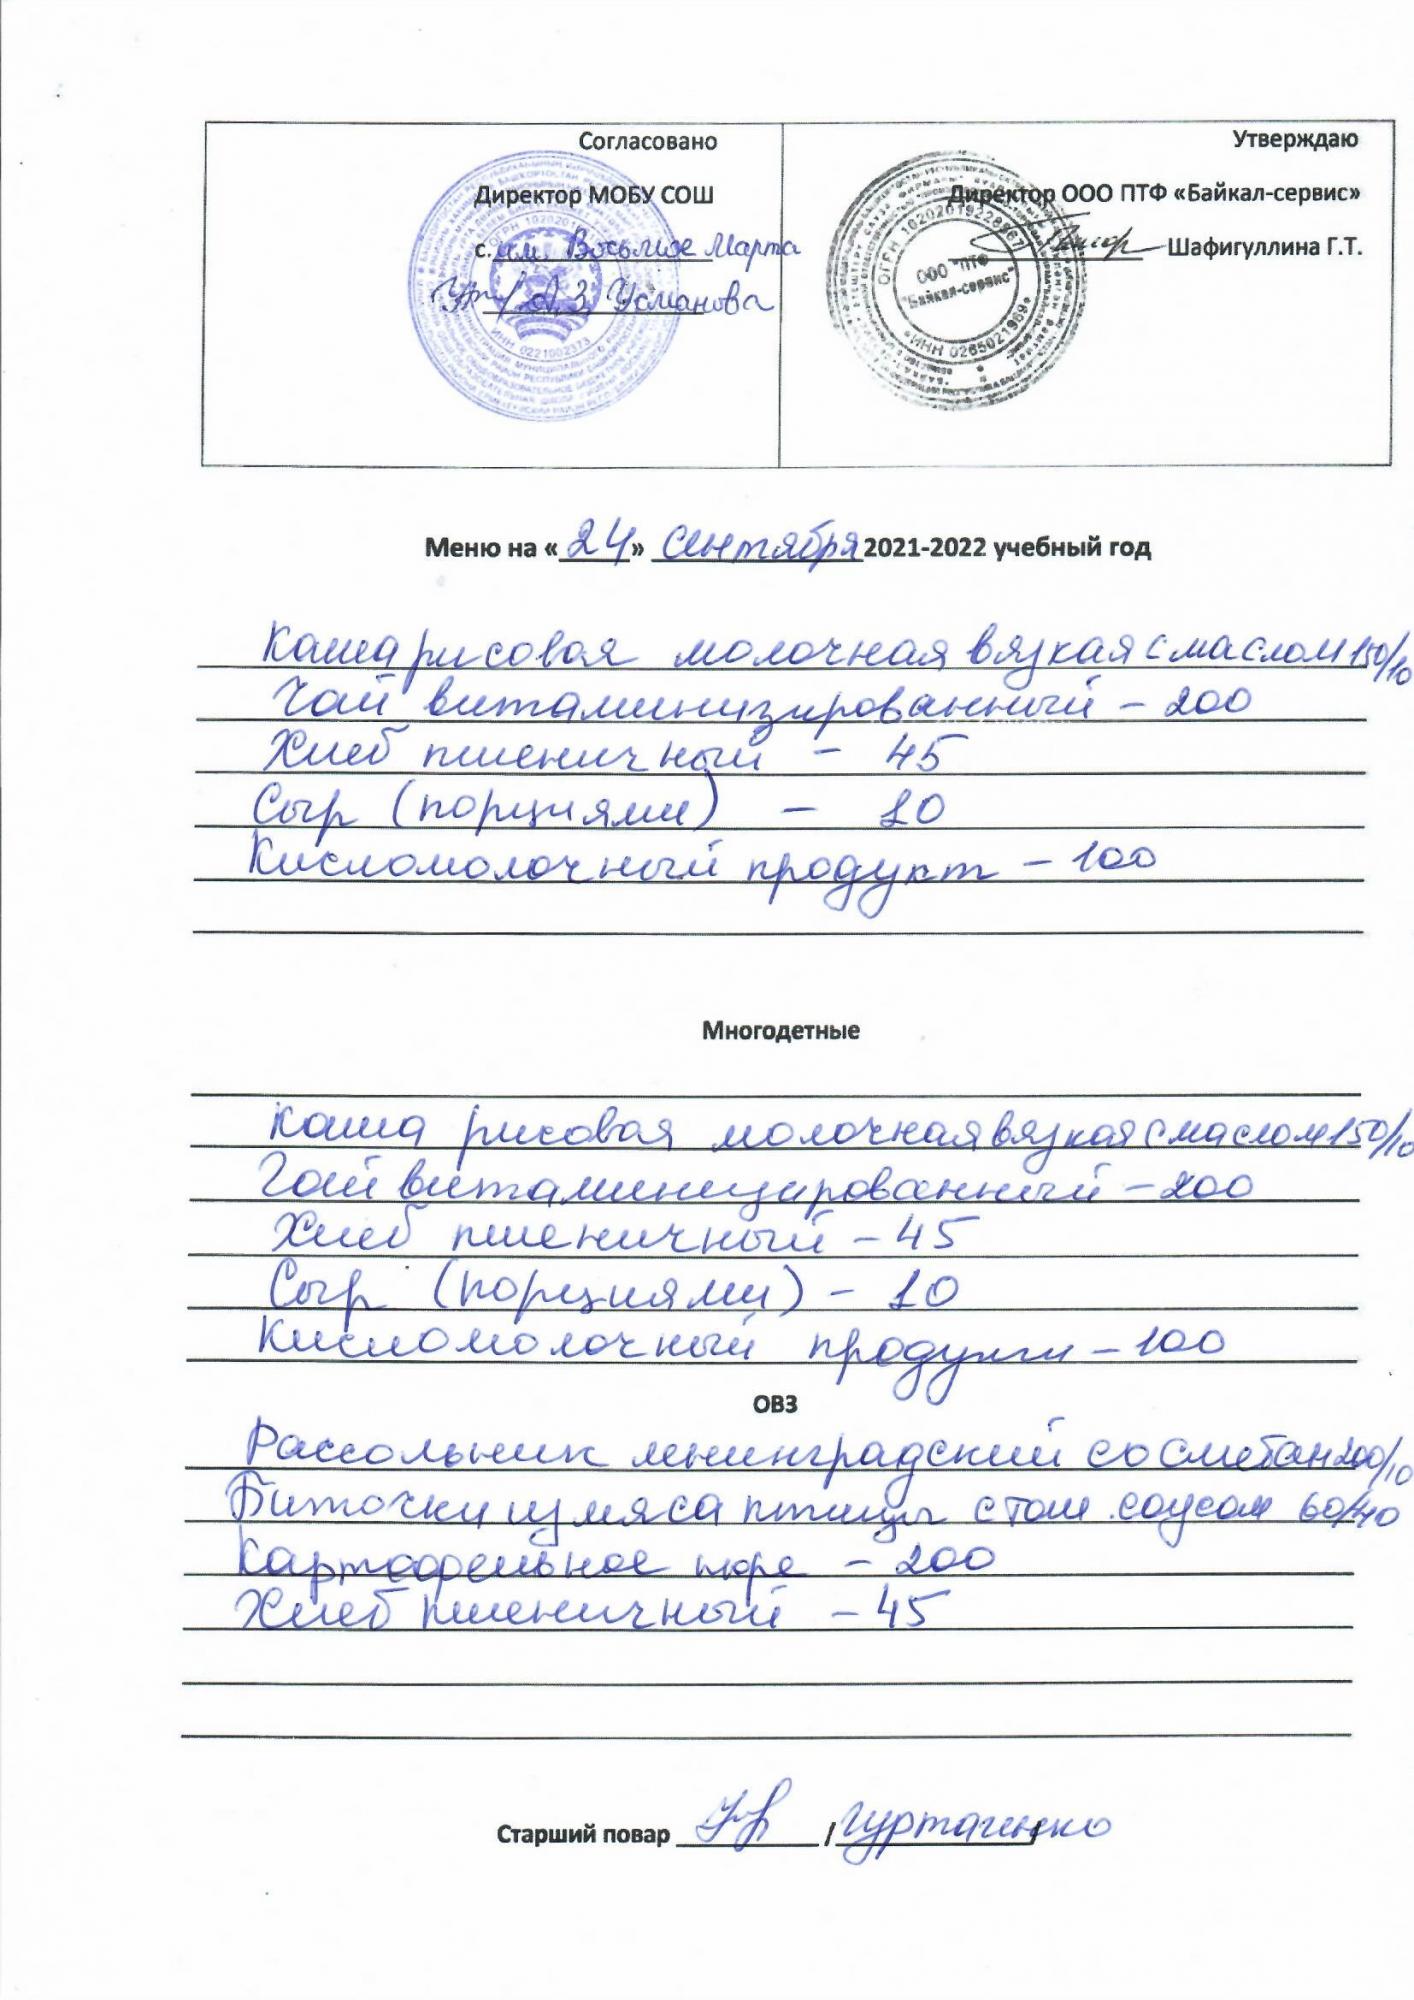 Согласовано
Директор МОБУ СОШ
с. им. Восьмое Марта
А.З. Усманова
Утверждаю
Директор ООО ПТФ «Байкал-сервис»
Шафигуллина Г.Т.
ОГРН
ИНН 0221002373
ОГРН 1020201922867
ООО "ПТФ
"Байкал-сервис"
ИНН 0265021989
Меню на «24» сентября 2021-2022 учебный год
Каша рисовая молочная вязкая с маслом 150/10
Чай витаминизированный - 200
Хлеб пшеничный - 45
Сыр (порциями) - 10
Кисломолочный продукт - 100
Многодетные
Каша рисовая молочная вязкая с маслом 150/10
Чай витаминизированный - 200
Хлеб пшеничный - 45
Сыр (порциями) - 10
Кисломолочный - 100
ОВЗ
Рассольник ленинградский со сметан 200/10
Биточки из мяса птицы с том. соусом 60/40
Картофельное пюре - 200
Хлеб пшеничный - 45
Старший повар / /